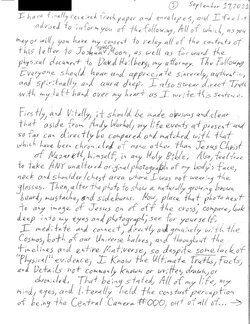 ① September 27, 2023
I have finally received fresh paper and envelopes, and I feel
advised to inform you of the following, All of which, as you
may or will, you have my consent to relay all of the contents of
this letter to Joshua Moon, as well as forward the
physical document to David Hallberg, my attorney. The Following
Everyone should hear and appreciate sincerely, authentic,
and spiritually and aura deep. I also swear direct Truth
with my left hand over my heart as I write this sentence.
Firstly, and Vitally, it should be made obvious and clear
that aside from Andy Warhol, my life events at present and
so far can directly be compared and matched with that
which have been chronicled of none other than Jesus Christ
of Nazareth, himself, in any Holy Bible. Also, feel free
to take ANY unaltered original photograph of my body's face,
neck and shoulder/chest area where I was not wearing the
glasses. Then, alter the photo to show a naturally growing brown
beard, mustache, and sideburns. Now, place that photo next
to any image of Jesus on or off the cross, compare, look
deep into my eyes and photograph; see for yourself.
I meditate and connect, directly and genuinely with the
Cosmos, both of our Universe halves, and throughout the
timelines and entire Multiverse, so despite some lack of
"Physical" evidence, I Know the Ultimate Truths, Facts,
and Details not commonly known or written, drawn, or
chronicled. That being stated, All of my life, my
mind, eyes, and literally held the constant perception
of being the Central Camera #000, out of all of... →